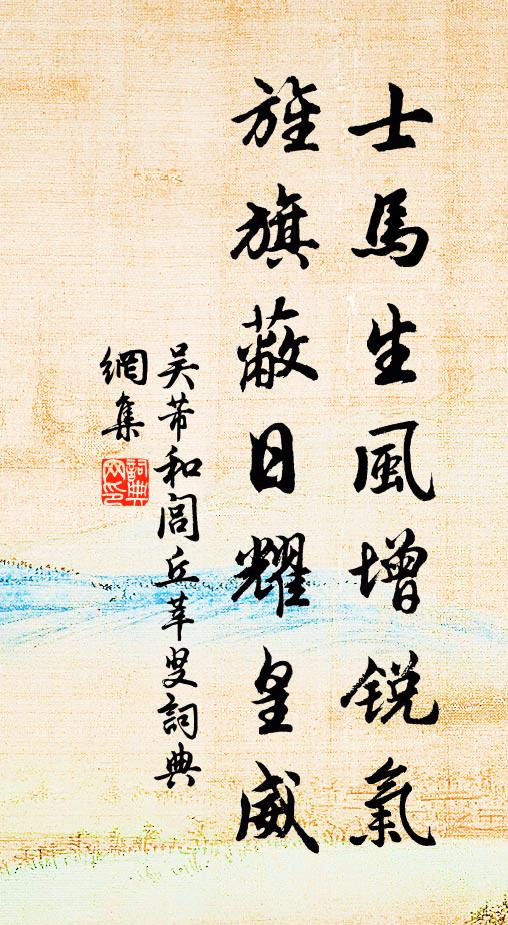 士馬生風增銳氣
旌旗蔽日耀皇威
吴芾和閭丘莘叟詞典
網集
詞典網印